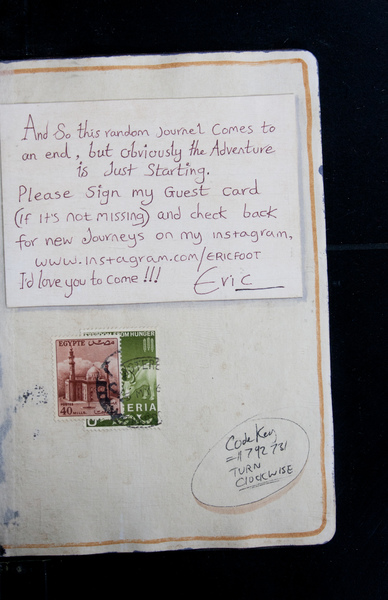 And So this random Journel Comes to
an end, but obviously the Adventure
is Just Starting.
Please Sign my Guest Card
(if it's not missing) and check back
for new Journeys on my instagram,
www.instagram.com/ERICFOOT
I'd love you to come!!!
Eric
EGYPTE مصر
40 MILLS
FROM HUNGER
ERIA
Code Key
=A792731
TURN
CLOCKWISE